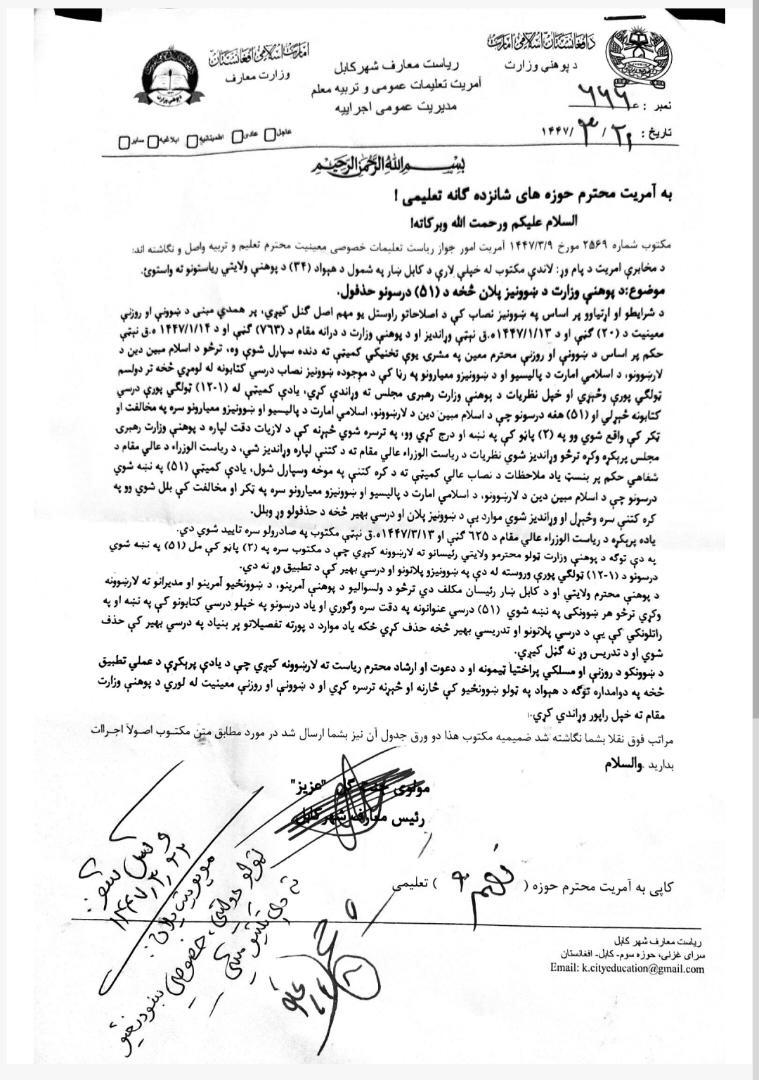 د افغانستان اسلامي امارت
د پوهنې وزارت
ریاست معارف شهرکابل
آمریت تعلیمات عمومی و تربیه معلم
مدیریت عمومی اجراییه
امارت اسلامی افغانستان
وزارت معارف
نمبر :
تاریخ : ۲۱ / ۳ /۱۴۴۷
عاجل عادی اطمینانیه ابلاغیه سایر
بسم الله الرحمن الرحیم
به آمریت محترم حوزه های شانزده گانه تعلیمی !
السلام علیکم ورحمت الله وبرکاته!
مکتوب شماره ۲۵۶۹ مورخ ۱۴۴۷/۳/۹ آمریت امور جواز ریاست تعلیمات خصوصی معینیت محترم تعلیم و تربیه واصل و نگاشته اند:
د مخابرې امریت د پام وړ: لاندې مکتوب له خپلې لارې د کابل ښار په شمول د هېواد (۳۴) د پوهنې ولایتي ریاستونو ته واستوئ.
موضوع:د پوهنې وزارت د ښوونیز پلان څخه د (۵۱) درسونو حذفول.
د شرایطو او اړتیاوو پر اساس په ښوونیز نصاب کې د اصلاحاتو راوستل یو مهم اصل ګڼل کیږي، پر همدې مبنی د ښوونې او روزنې
معینیت د (۲۰) ګڼې او د ۱۴۴۷/۱/۱۳ه.ق نېټې وړاندیز او د پوهنې وزارت د درانه مقام د (۷۶۳) ګڼې او د ۱۴۴۷/۱/۱۴ ه.ق نېټې
حکم پر اساس د ښوونې او روزنې محترم معین په مشرۍ یوې تخنیکي کمیټې ته دنده سپارل شوې وه، ترڅو د اسلام مبین دین د
لارښوونو، د اسلامي امارت د پالیسیو او د ښوونیزو معیارونو په رڼا کې د موجوده ښوونیز نصاب درسي کتابونه له لومړي څخه تر دولسم
ټولګي پورې وڅېړي او خپل نظریات د پوهنې وزارت رهبرۍ مجلس ته وړاندې کړي، یادې کمیټې له (۱-۱۲) ټولګي پورې درسي
کتابونه څېړلي او (۵۱) هغه درسونو چې د اسلام مبین دین د لارښوونو، اسلامي امارت د پالیسیو او ښوونیزو معیارونو سره په مخالفت او
ټکر کې واقع شوي وو په (۲) پاڼو کې په نښه او درج کړي وو، په ترسره شوي څېړنه کې د لازیات دقت لپاره د پوهنې وزارت رهبرۍ
مجلس پرېکړه وکړه ترڅو وړاندیز شوي نظریات د ریاست الوزراء عالي مقام ته د کتنې لپاره وړاندیز شي، د ریاست الوزراء د عالي مقام د
شفاهي حکم پر بنسټ یاد ملاحظات د نصاب عالي کمیټې ته د کره کتنې په موخه وسپارل شول، یادې کمیټې (۵۱) په نښه شوي
درسونو چې د اسلام مبین دین د لارښوونو، د اسلامي امارت د پالیسیو او ښوونیزو معیارونو سره په ټکر او مخالفت کې بلل شوي وو په
کره کتنې سره وڅېړل او وړاندیز شوي موارد یې د ښوونیز پلان او درسي بهیر څخه د حذفولو وړ وبلل.
یاده پرېکړه د ریاست الوزراء عالي مقام د ۶۲۵ ګڼې او ۱۴۴۷/۳/۱۳ه.ق نېټې مکتوب په صادرولو سره تایید شوې دي.
په دې توګه د پوهنې وزارت ټولو محترمو ولایتي رئیسانو ته لارښوونه کیږي چې د مکتوب سره په (۲) پاڼو کې مل (۵۱) په نښه شوي
درسونو د (۱-۱۲) ټولګي پورې وروسته له دې په ښوونیزو پلانونو او درسي بهیر کې د تطبیق وړ نه دي.
د پوهنې محترم ولایتي او د کابل ښار رئیسان مکلف دي ترڅو د ولسوالیو د پوهنې آمرینو، د ښوونځیو آمرینو او مدیرانو ته لارښوونه
وکړي ترڅو هر ښوونکی په نښه شوي (۵۱) درسي عنوانونه په دقت سره وګوري او یاد درسونو په خپلو درسي کتابونو کې په نښه او په
راتلونکي کې یې د درسي پلانونو او تدریسي بهیر څخه حذف کړي ځکه یاد موارد د پورته تفصیلاتو پر بنیاد په درسي بهیر کې حذف
شوي او د تدریس وړ نه ګڼل کیږي.
د ښوونکو د روزنې او مسلکي پراختیا ټیمونه او د دعوت او ارشاد محترم ریاست ته لارښوونه کیږي چې د یادې پرېکړې د عملي تطبیق
څخه په دوامداره توګه د هېواد په ټولو ښوونځیو کې څارنه او څېړنه ترسره کړي او د ښوونې او روزنې معینیت له لوري د پوهنې وزارت
مقام ته خپل راپور وړاندې کړي.
مراتب فوق نقلا بشما نگاشته شد ضمیمیه مکتوب هذا دو ورق جدول آن نیز بشما ارسال شد در مورد مطابق متن مکتوب اصولاً اجراات
بدارید .والسلام
مولوی "عزیز"
رئیس معارف شهرکابل
کاپی به آمریت محترم حوزه ( ) تعلیمی
ریاست معارف شهر کابل
سرای غزنی، حوزه سوم- کابل- افغانستان
Email: k.cityeducation@gmail.com